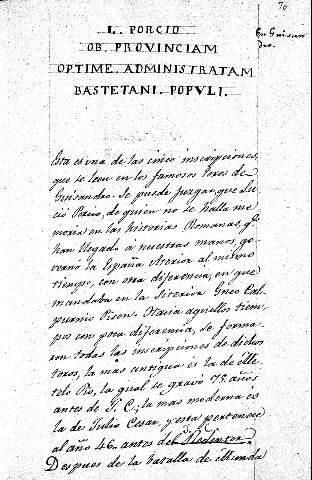 70
L. PORCIO
OB. PROVINCIAM
OPTIME. ADMINISTRATAM
BASTETANI. POPULI.
En Guisan
do.
Esta es una de las cinco inscripciones,
que se leen en los famosos toros de
Guisandro. Se puede juzgar, que Lu
cio Porcio, de quien no se halla me
moria en las historias Romanas, qe.
han llegado à nuestras manos, go-
vernó la España Ulterior al mismo
tiempo, con otra diferencia, en que
mandaba en la Siterior Gneo Cal-
purnio Pison. Hacia aquellos tiem-
pos con poca diferencia, se forma-
ron todas las inscripciones de dichos
toros, la mas antigua es la de Me-
telo Pio, la qual se gravó 75 años,
antes de J. C.; la mas moderna es
la de Julio Cesar, y esta pertenece
al año 46. antes del Redentor.
J. C.
Despues de la batalla de Munda